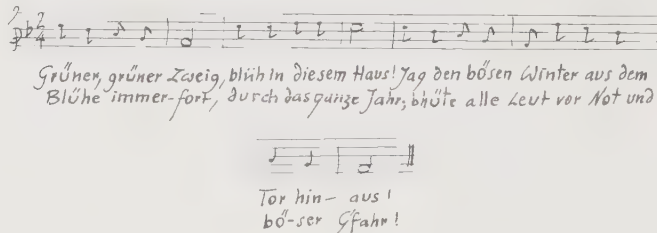 7.
2
4
Grüner, grüner Zweig, blüh in diesem Haus! Jag den bösen Winter aus dem
Blühe immer-fort, durch das ganze Jahr; bhüte alle Leut vor Not und
Tor hin- aus!
bö-ser G'fahr!